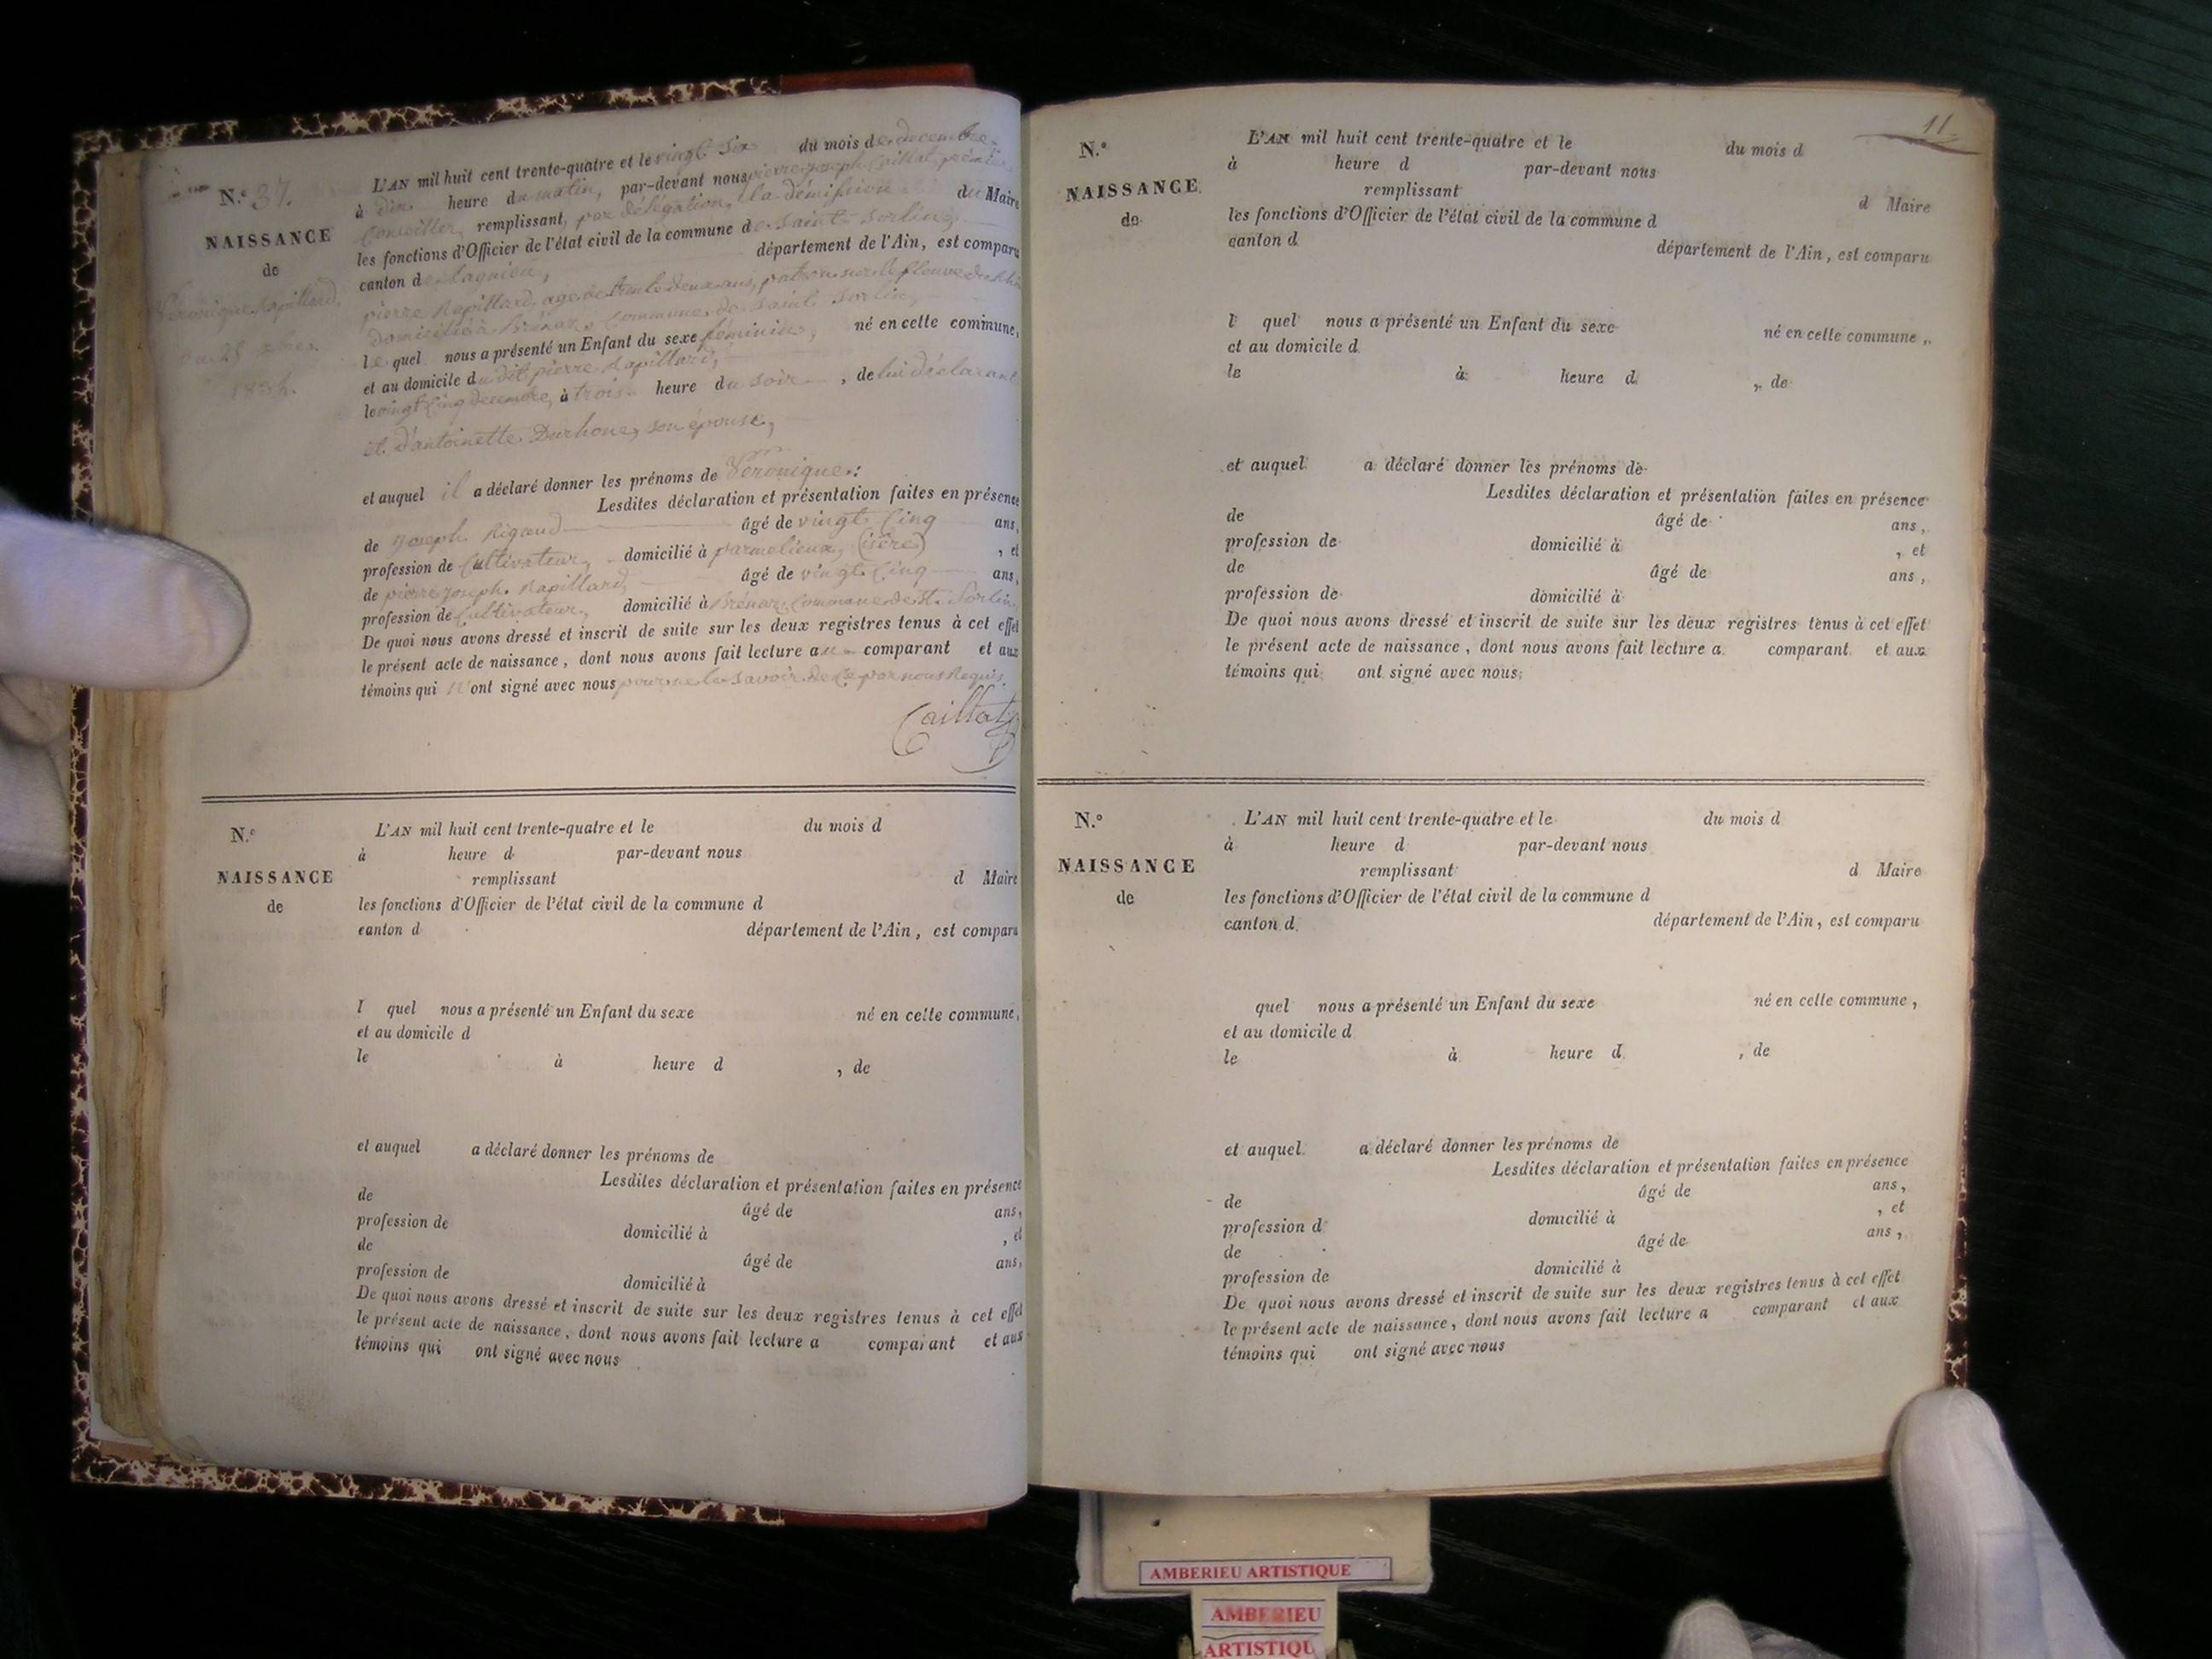 N.° 37.
NAISSANCE
de
Véronique Rapillard,
1834.
L'AN mil huit cent trente-quatre et le vingt six du mois de decembre
à dix heure du matin, par-devant nous pierre joseph Caillat, premier
Conseiller, remplissant, par délégation, la démission du Maire
les fonctions d'Officier de l'état civil de la commune de Saint Sorlin,
canton de Lagnieu, département de l'Ain, est comparu
pierre Rapillard, age de trente deux ans, patron sur le fleuve du Rhône
domicilié à Brénaz, Commune de Saint Sorlin,
lequel nous a présenté un Enfant du sexe féminin, né en cette commune,
et au domicile dudit pierre Rapillard,
le vingt Cinq decembre, à trois heure du soir, de lui déclarant
et d'antoinette Durhone, son épouse,
et auquel il a déclaré donner les prénoms de Véronique.:
Lesdites déclaration et présentation faites en présence
de Joseph Rigaud âgé de vingt Cinq ans,
profession de Cultivateur, domicilié à parmelieux, (isère), et
de pierre joseph Rapillard, âgé de vingt Cinq ans,
profession de Cultivateur, domicilié à Brénaz, Commune de St. Sorlin,
De quoi nous avons dressé et inscrit de suite sur les deux registres tenus à cet effet
le présent acte de naissance, dont nous avons fait lecture au comparant et aux
témoins qui n'ont signé avec nous pour ne le savoir de Ce par nous Requis.
Caillat
N.°
NAISSANCE
de
L'AN mil huit cent trente-quatre et le du mois d
à heure d par-devant nous
remplissant d Maire
les fonctions d'Officier de l'état civil de la commune d
canton d département de l'Ain, est comparu
l quel nous a présenté un Enfant du sexe né en cette commune,
et au domicile d
le à heure d , de
et auquel a déclaré donner les prénoms de
Lesdites déclaration et présentation faites en présence
de âgé de ans,
profession de domicilié à , et
de âgé de ans,
profession de domicilié à
De quoi nous avons dressé et inscrit de suite sur les deux registres tenus à cet effet
le présent acte de naissance, dont nous avons fait lecture a comparant et aux
témoins qui ont signé avec nous
11
N.°
NAISSANCE
de
L'AN mil huit cent trente-quatre et le du mois d
à heure d par-devant nous
remplissant d Maire
les fonctions d'Officier de l'état civil de la commune d
canton d département de l'Ain, est comparu
l quel nous a présenté un Enfant du sexe né en cette commune,
et au domicile d
le à heure d , de
et auquel a déclaré donner les prénoms de
Lesdites déclaration et présentation faites en présence
de âgé de ans,
profession de domicilié à , et
de âgé de ans,
profession de domicilié à
De quoi nous avons dressé et inscrit de suite sur les deux registres tenus à cet effet
le présent acte de naissance, dont nous avons fait lecture a comparant et aux
témoins qui ont signé avec nous
N.°
NAISSANCE
de
L'AN mil huit cent trente-quatre et le du mois d
à heure d par-devant nous
remplissant d Maire
les fonctions d'Officier de l'état civil de la commune d
canton d département de l'Ain, est comparu
quel nous a présenté un Enfant du sexe né en cette commune,
et au domicile d
le à heure d , de
et auquel a déclaré donner les prénoms de
Lesdites déclaration et présentation faites en présence
de âgé de ans,
profession d domicilié à , et
de âgé de ans,
profession de domicilié à
De quoi nous avons dressé et inscrit de suite sur les deux registres tenus à cet effet
le présent acte de naissance, dont nous avons fait lecture a comparant et aux
témoins qui ont signé avec nous
AMBERIEU ARTISTIQUE
AMBERIEU
ARTISTIQU